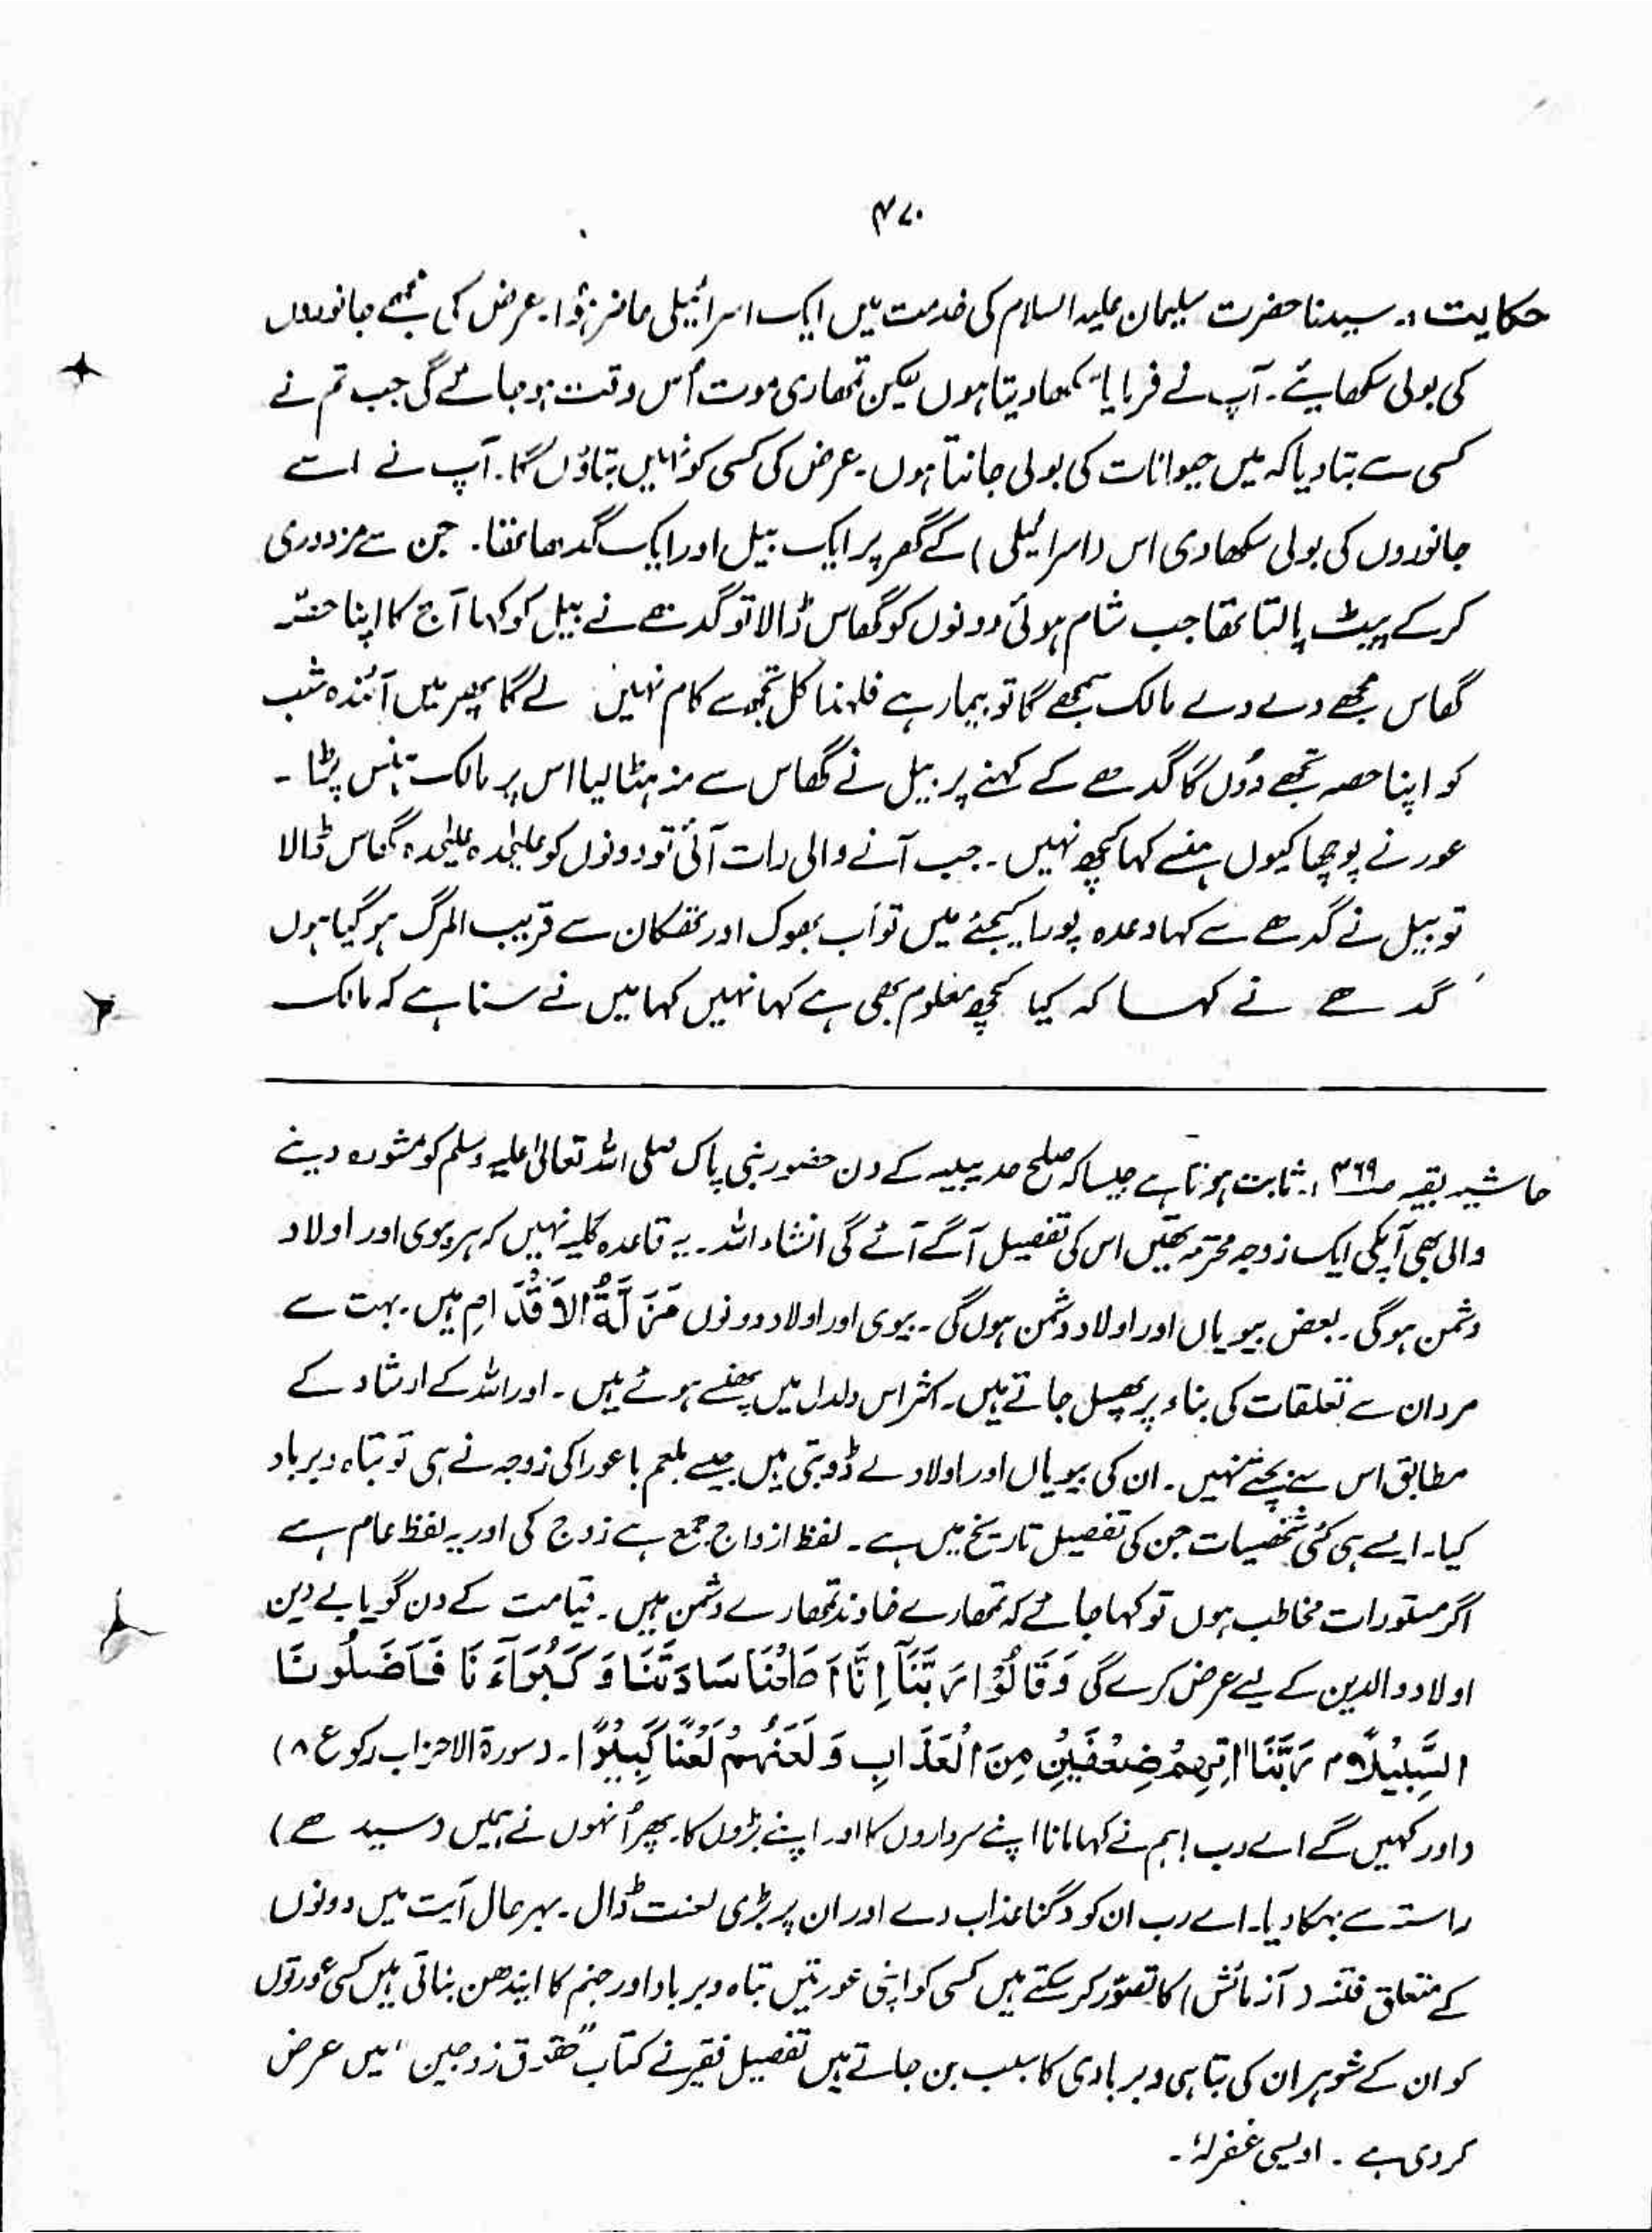 ۴۷۰
حکایت :۔ سیدنا حضرت سلیمان علیہ السلام کی خدمت میں ایک اسرائیلی حاضر ہُوا۔ عرض کی مجھے جانوروں
کی بولی سکھایئے۔ آپ نے فرمایا سکھا دیتا ہوں لیکن تمھاری موت اُس وقت ہو جائے گی جب تم نے
کسی سے بتا دیا کہ میں حیوانات کی بولی جانتا ہوں۔ عرض کی کسی کو نہیں بتاؤں گا۔ آپ نے اسے
جانوروں کی بولی سکھا دی اس (اسرائیلی) کے گھر پر ایک بیل اور ایک گدھا تھا۔ جن سے مزدوری
کرکے پیٹ پالتا تھا جب شام ہوئی دونوں کو گھاس ڈالا تو گدھے نے بیل کو کہا آج کا اپنا حصّہ
گھاس مجھے دے دے مالک سمجھے گا تو بیمار ہے فلہٰذا کل تجھ سے کام نہیں لے گا پھر میں آئندہ شب
کو اپنا حصہ تجھے دوں گا گدھے کے کہنے پر بیل نے گھاس سے منہ ہٹا لیا اس پر مالک ہنس پڑا ۔
عورت نے پوچھا کیوں ہنسے کہا کچھ نہیں ۔ جب آنے والی رات آئی تو دونوں کو علیٰحدہ علیٰحدہ گھاس ڈالا
تو بیل نے گدھے سے کہا وعدہ پورا کیجئے میں تو اَب بھوک اور تھکان سے قریب المرگ ہو گیا ہوں
گدھے نے کہا کہ کیا کچھ معلوم بھی ہے کہا نہیں کہا میں نے سنا ہے کہ مالک
حاشیہ بقیہ صـ۳۶۹ :۔ ثابت ہوتا ہے جیسا کہ صلح حدیبیہ کے دن حضور نبی پاک صلی اللہ تعالیٰ علیہ وسلم کو مشورہ دینے
والی بھی آپکی ایک زوجہ محترمہ تھیں اس کی تفصیل آگے آئے گی انشاء اللہ ۔ یہ قاعدہ کلیہ نہیں کہ ہر بیوی اور اولاد
دشمن ہو گی ۔ بعض بیویاں اور اولاد دشمن ہوں گی ۔ بیوی اور اولاد دونوں مَزَلَّۃُ الاَقْدَامِ ہیں ۔ بہت سے
مرد ان سے تعلقات کی بناء پر پھسل جاتے ہیں ۔ اکثر اس دلدل میں پھنسے ہوئے ہیں ۔ اور اللہ کے ارشاد کے
مطابق اس سے بچتے نہیں ۔ ان کی بیویاں اور اولاد لے ڈوبتی ہیں جیسے بلعم باعورا کی زوجہ نے ہی تو تباہ و برباد
کیا ۔ ایسے ہی کئی شخصیات جن کی تفصیل تاریخ میں ہے ۔ لفظ ازواج جمع ہے زوج کی اور یہ لفظ عام ہے
اگر مستورات مخاطب ہوں تو کہا جائے کہ تمھارے خاوند تمھارے دشمن ہیں ۔ قیامت کے دن گویا بے دین
اولاد والدین کے لیے عرض کرے گی وَقَالُوْا رَبَّنَآ اِنَّا اَطَعْنَا سَادَتَنَا وَ کُبَرَآءَ نَا فَاَضَلُّوْنَا
السَّبِیْلَا م رَبَّنَآ اٰتِہِمْ ضِعْفَیْنِ مِنَ الْعَذَابِ وَ لَعَنْہُمْ لَعْنًا کَبِیْرًا ۔ (سورۃ الاحزاب رکوع ۸)
(اور کہیں گے اے رب ! ہم نے کہا مانا اپنے سرداروں کا اور اپنے بڑوں کا پھر اُنہوں نے ہمیں (سیدھے)
راستہ سے بہکا دیا ۔ اے رب ان کو دگنا عذاب دے اور ان پر بڑی لعنت ڈال ۔ بہرحال آیت میں دونوں
کے متعلق فتنہ (آزمائش) کا تصوّر کر سکتے ہیں کسی کو اپنی عورتیں تباہ و برباد اور جہنم کا ایندھن بناتی ہیں کسی عورتوں
کو ان کے شوہر ان کی تباہی و بربادی کا سبب بن جاتے ہیں تفصیل فقیر نے کتاب "حقوق زوجین" میں عرض
کر دی ہے ۔ اویسی غفرلہٗ ۔